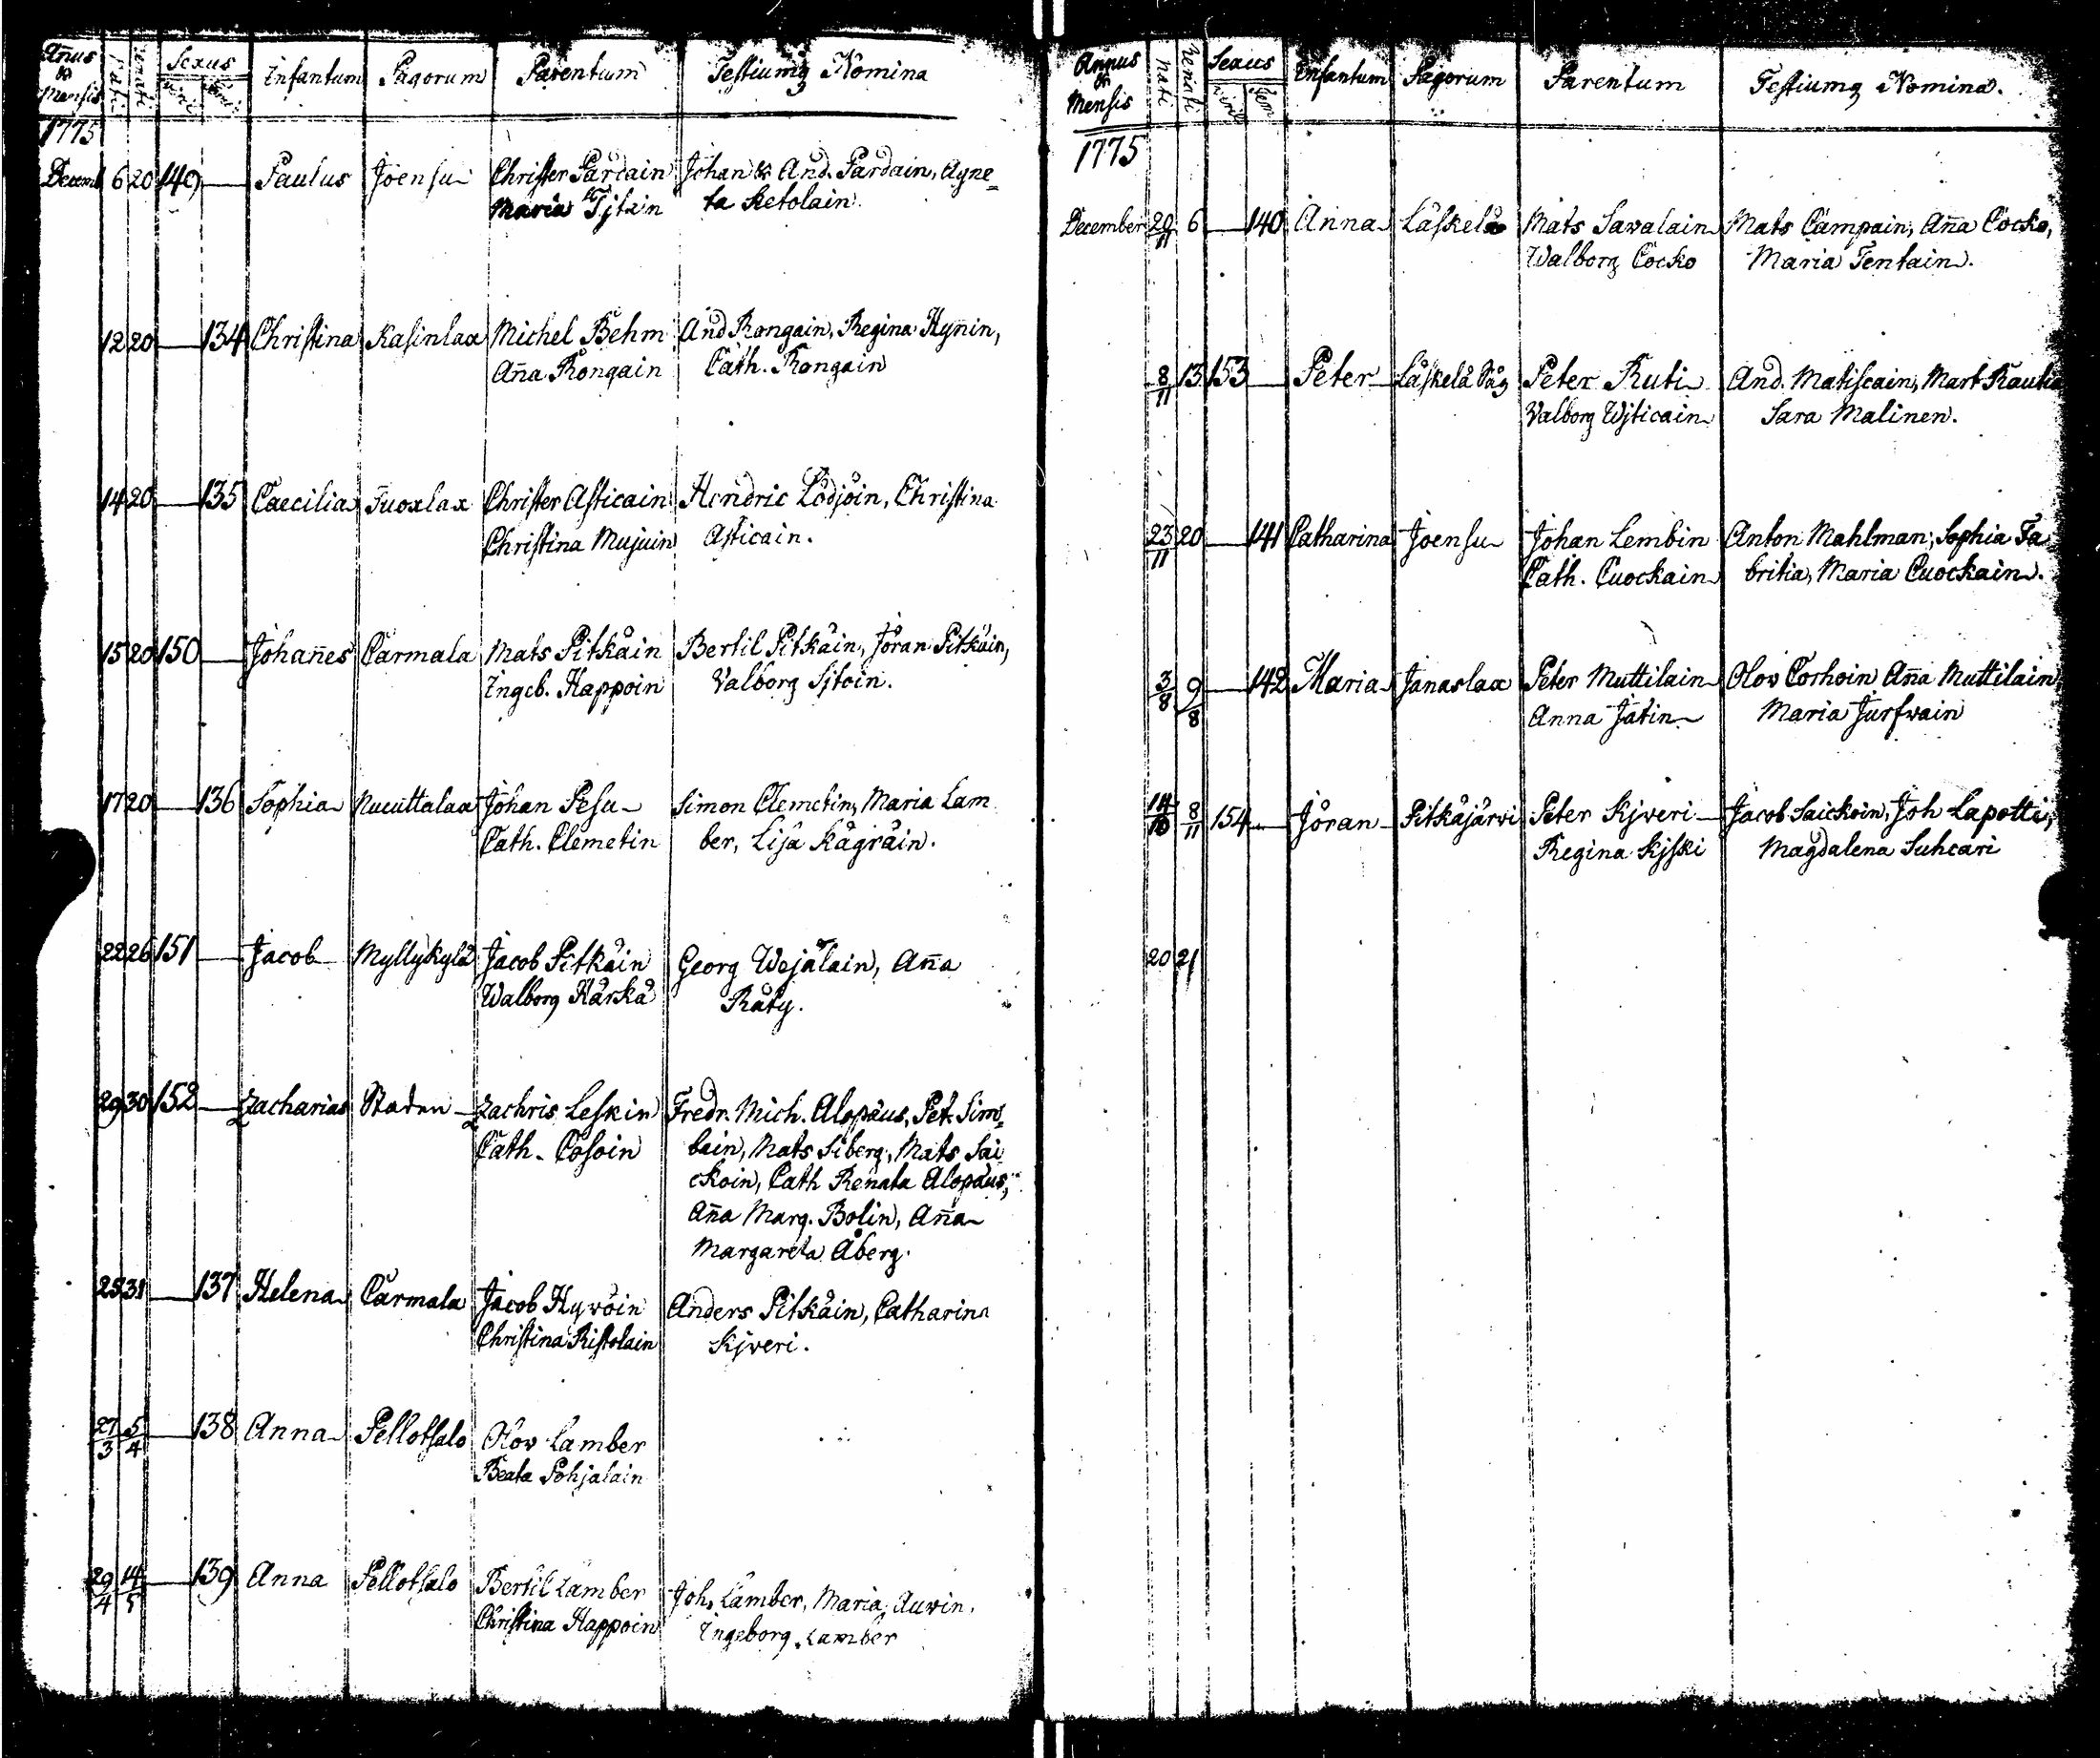 Añus & Mensis nati Renati Sexus viril fem: Infantum Pagorum Parentum Testiumq Nomina
1775
Decemb 6 20 149 — Paulus Joensu Christer Pärdäin Johan & And. Pardain, Agne=
Maria Tjtäin ta Ketolain.
12 20 — 134 Christina Kasinlax Michel Behm And Rongain, Regina Hynin,
Aña Rongain Cath. Rongain
14 20 — 135 Caecilia Tuoxlax Christer Asticain Hendric Lödjöin, Christina
Christina Mujuin Asticain.
15 20 150 — Johañes Carmala Mats Pitkäin Bertil Pitkäin, Jöran Pitkäin,
Ingeb. Happoin Valborg Sjtoin.
17 20 — 136 Sophia Nucuttalax Johan Pesu Simon Clemetin, Maria Lam
Cath. Clemetin ber, Lisa Kägräin.
22 26 151 — Jacob Myllykylä Jacob Pitkäin Georg Wejäläin, Aña
Walborg Kärkä Räty.
29 30 152 — Zacharias Staden Zachris Leskin Fredr. Mich. Alopäus, Pet. Sim=
Cath. Cosoin lain, Mats Siberg, Mats Sai
ckoin, Cath Renata Alopäus,
Aña Marg. Bolin, Aña
Margareta Åberg.
25 31 — 137 Helena Carmala Jacob Hywöin Anders Pitkäin, Catharina
Christina Ristolain Kjveri.
27/3 5/4 — 138 Anna Pellotsalo Olov Lamber
Beata Pohjalain
29/4 14/5 — 139 Anna Pellotsalo Bertil Lamber Joh. Lamber, Maria Auvin,
Christina Happoin Ingeborg Lamber
Annus & Mensis nati Renati Sexus viril fem Infantum Pagorum Parentum Testiumq Nomina.
1775
December 20/11 6 — 140 Anna Läskelä Mats Savalain Mats Campain, Aña Cocko,
Walborg Cocko Maria Tentain.
8/11 13 153 — Peter Läskelä Såg Peter Ruti And. Matiscain, Mart Rautia
Valborg Wjticain Sara Malinen.
23/11 20 — 141 Catharina Joensu Johan Lembin Anton Mahlman, Sophia Fa
Cath. Cuockain britia, Maria Cuockain.
3/8 9/8 — 142 Maria Janaslax Peter Muttilain Olov Corhoin Aña Muttilain,
Anna Jätin Maria Jurfvain
14/10 8/11 154 — Jöran Pitkäjärvi Peter Kjveri Jacob Saickoin, Joh Lapotti,
Regina Kjski Magdalena Suhcari
20 21